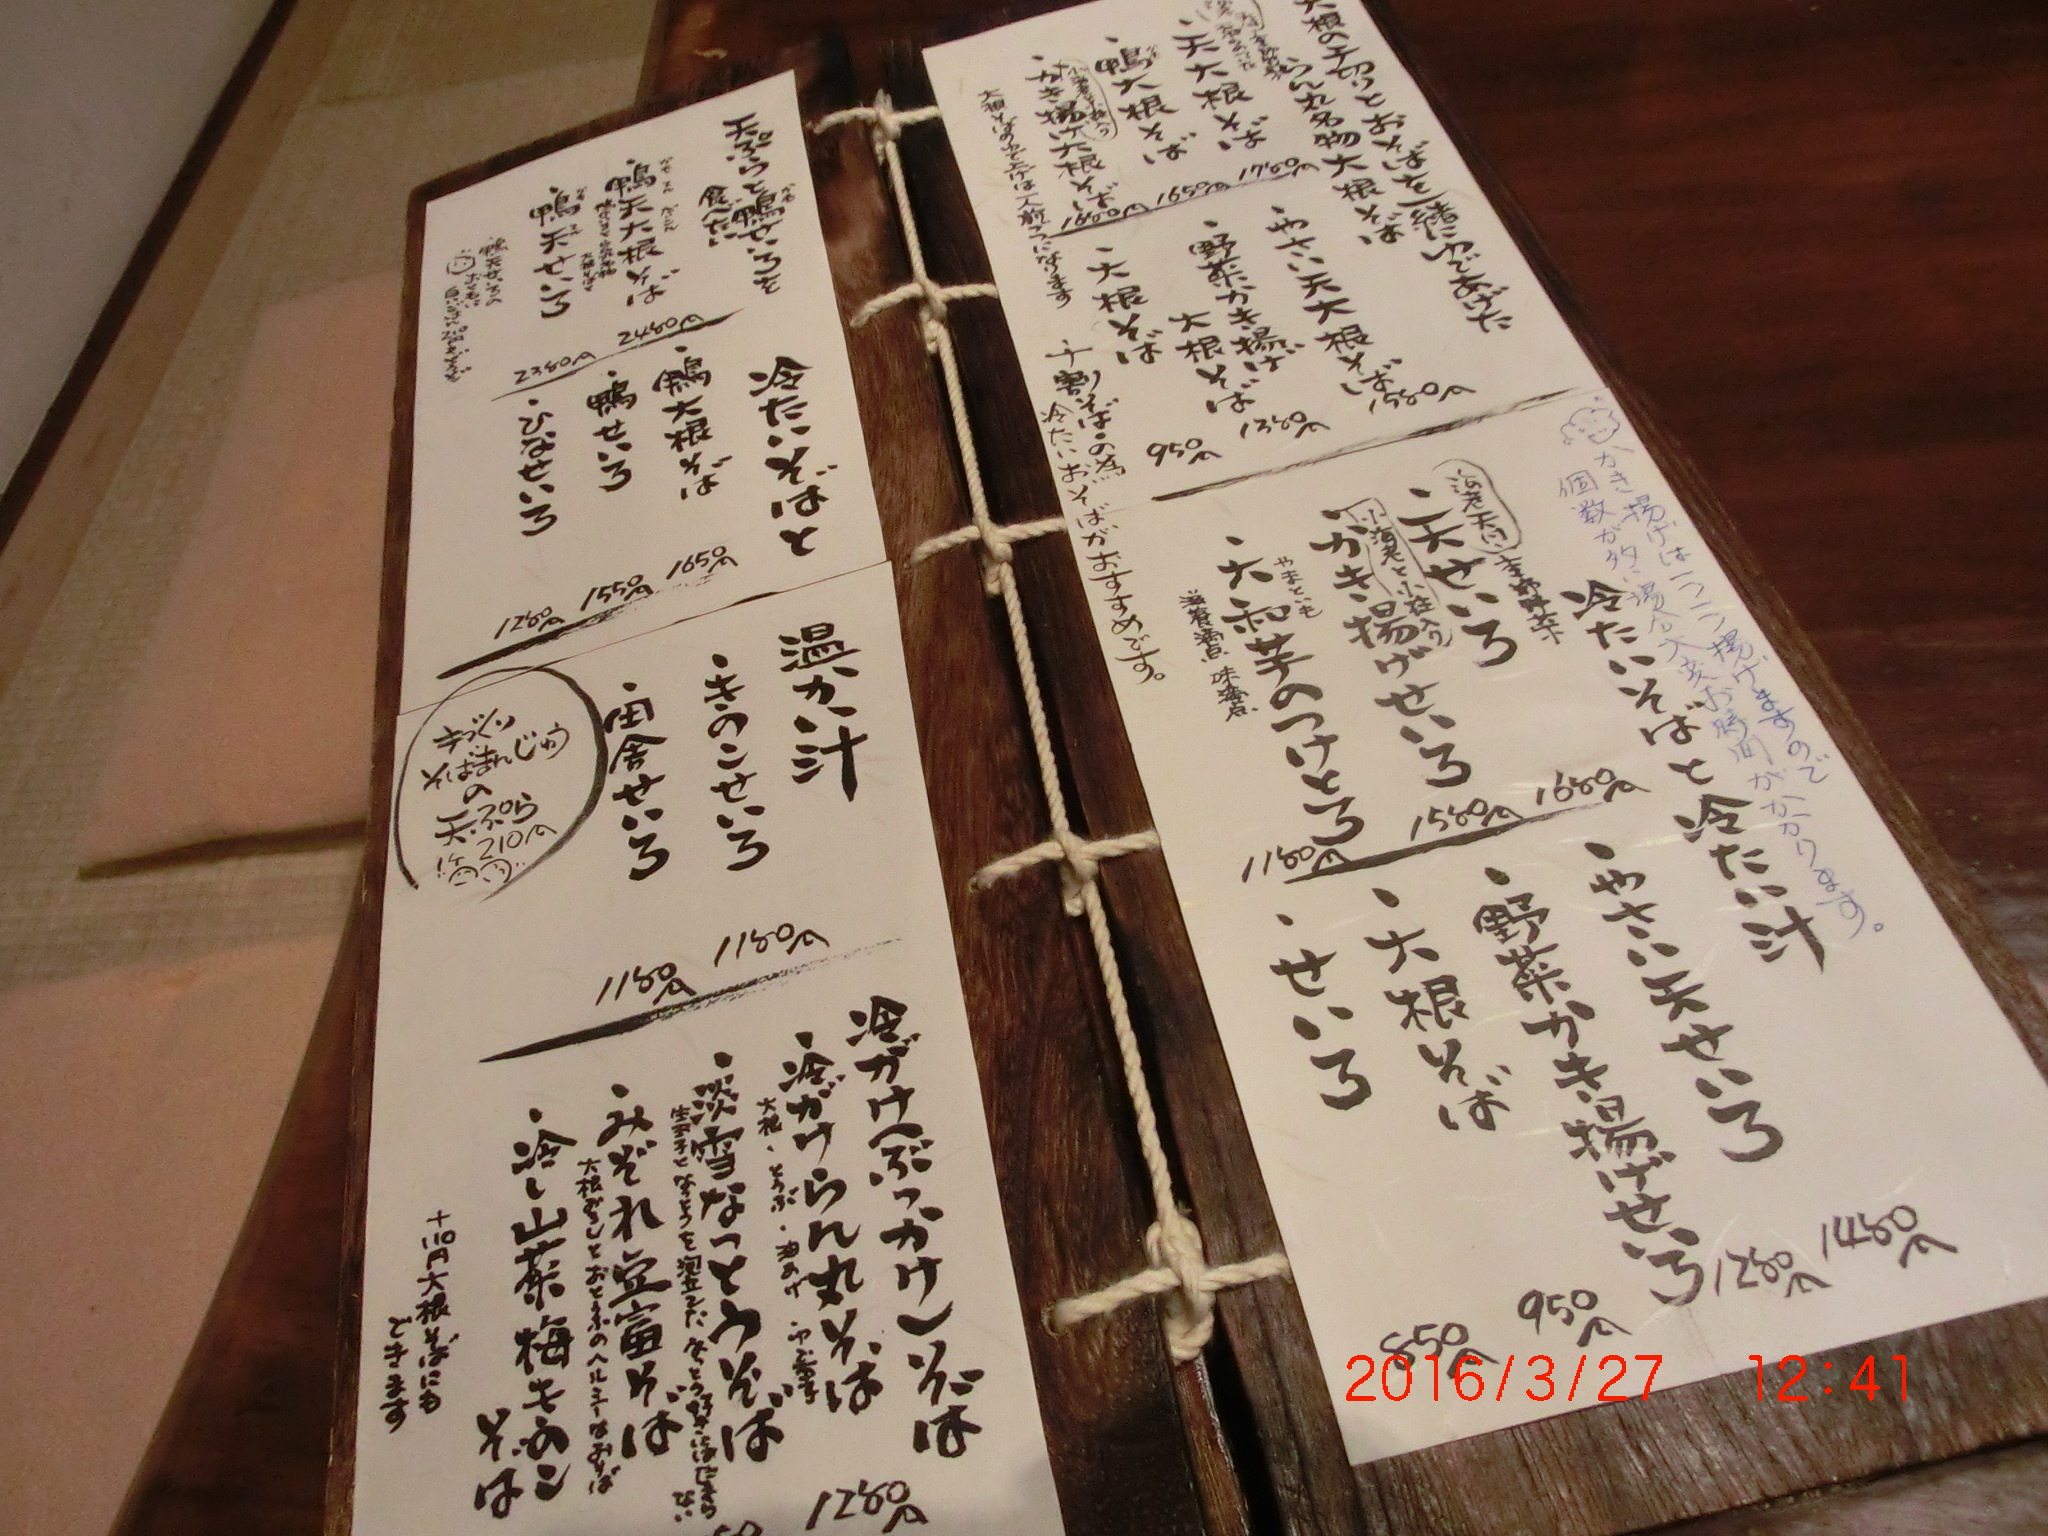 大根の千切りとおそばを一緒にゆであげた
らん丸名物大根そば
・天大根そば
1780円
・鴨大根そば
1650円
・かき揚げ大根そば
1680円
大根そばの
・やさい天大根そば
1580円
・野菜かき揚げ
大根そば
1380円
・大根そば
950円
十割そばの為
冷たいおそばがおすすめです。
かき揚げは一つ一つ揚げますので
個数が多い場合大変お時間がかかります。
冷たいそばと冷たい汁
海老天付
季節野菜
・天せいろ
1680円
小海老と小柱入り
・かき揚げせいろ
1580円
やまといも
・大和芋のつけとろ
1180円
・やさい天せいろ
1480円
・野菜かき揚げせいろ
1280円
・大根そば
950円
・せいろ
850円
天ぷらと鴨せいろを
食べたい
・鴨天大根そば
2480円
・鴨天せいろ
2380円
冷たいそばと
温か汁
・鴨大根そば
1650円
・鴨せいろ
1550円
・ひなせいろ
1280円
・きのこせいろ
1180円
・田舎せいろ
1180円
手づくり
そばまんじゅう
の
天ぷら
1ケ210円
冷がけ(ぶっかけ)そば
・冷がけらん丸そば
大根・とうふ・油あげ
1280円
・淡雪なっとうそば
・みぞれ豆富そば
大根おろしとおとうふのヘルシーなおそば
・冷し山菜梅きのこ
そば
+110円大根そばにも
できます
2016/3/27 12:41